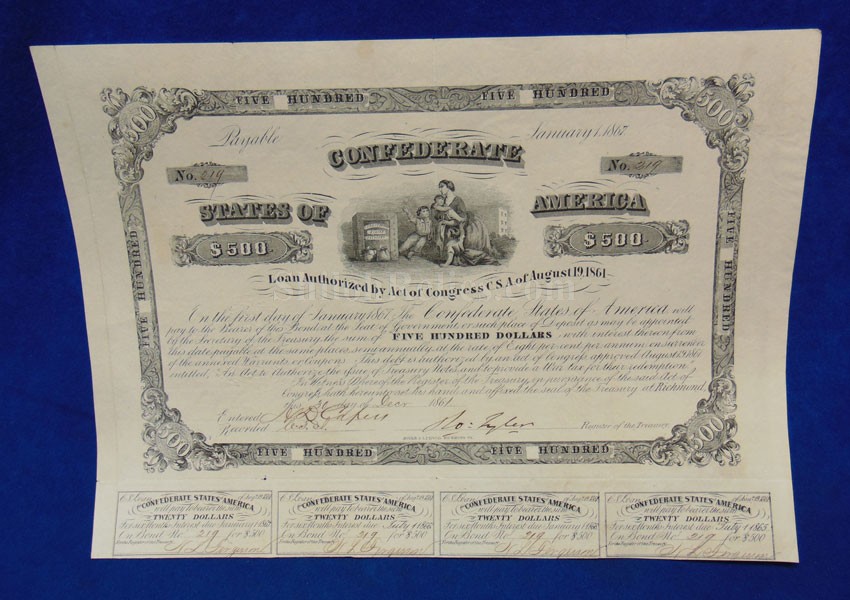 FIVE HUNDRED FIVE HUNDRED
500 500
Payable January 1, 1867
CONFEDERATE
No. 219 No. 219
STATES OF AMERICA
$500 $500
Loan Authorized by Act of Congress C S A of August 19, 1861
On the first day of January 1867 The Confederate States of America will
pay to the Bearer of this Bond at the Seat of Government or such place of Deposit as may be appointed
by the Secretary of the Treasury the sum of FIVE HUNDRED DOLLARS with interest thereon from
this date payable at the same places semi annually at the rate of Eight per cent per annum on surrender
of the annexed Warrants or Coupons. This debt is authorized by an act of Congress approved August 19, 1861
entitled, An Act to Authorize the issue of Treasury Notes and to provide a War tax for their redemption.
In Witness Whereof the Register of the Treasury in pursuance of the said Act of
Congress hath hereunto set his hand and affixed the seal of the Treasury at Richmond
this 31 day of Decr 1861
Entered
Recorded Ro: Tyler Register of the Treasury
FIVE HUNDRED
FIVE HUNDRED
500 500
FIVE HUNDRED FIVE HUNDRED
C.S. Loan of Aug. 19, 1861
CONFEDERATE STATES' AMERICA
will pay to bearer the sum
TWENTY DOLLARS
For six Months Interest due January 1
On Bond No 219 for $500
C.S. Loan of Aug. 19, 1861
CONFEDERATE STATES' AMERICA
will pay to bearer the sum
TWENTY DOLLARS
For six Months Interest due July 1
On Bond No 219 for $500
C.S. Loan of Aug. 19, 1861
CONFEDERATE STATES' AMERICA
will pay to bearer the sum
TWENTY DOLLARS
For six Months Interest due January 1
On Bond No 219 for $500
C.S. Loan of Aug. 19, 1861
CONFEDERATE STATES' AMERICA
will pay to bearer the sum
TWENTY DOLLARS
For six Months Interest due July 1
On Bond No 219 for $500